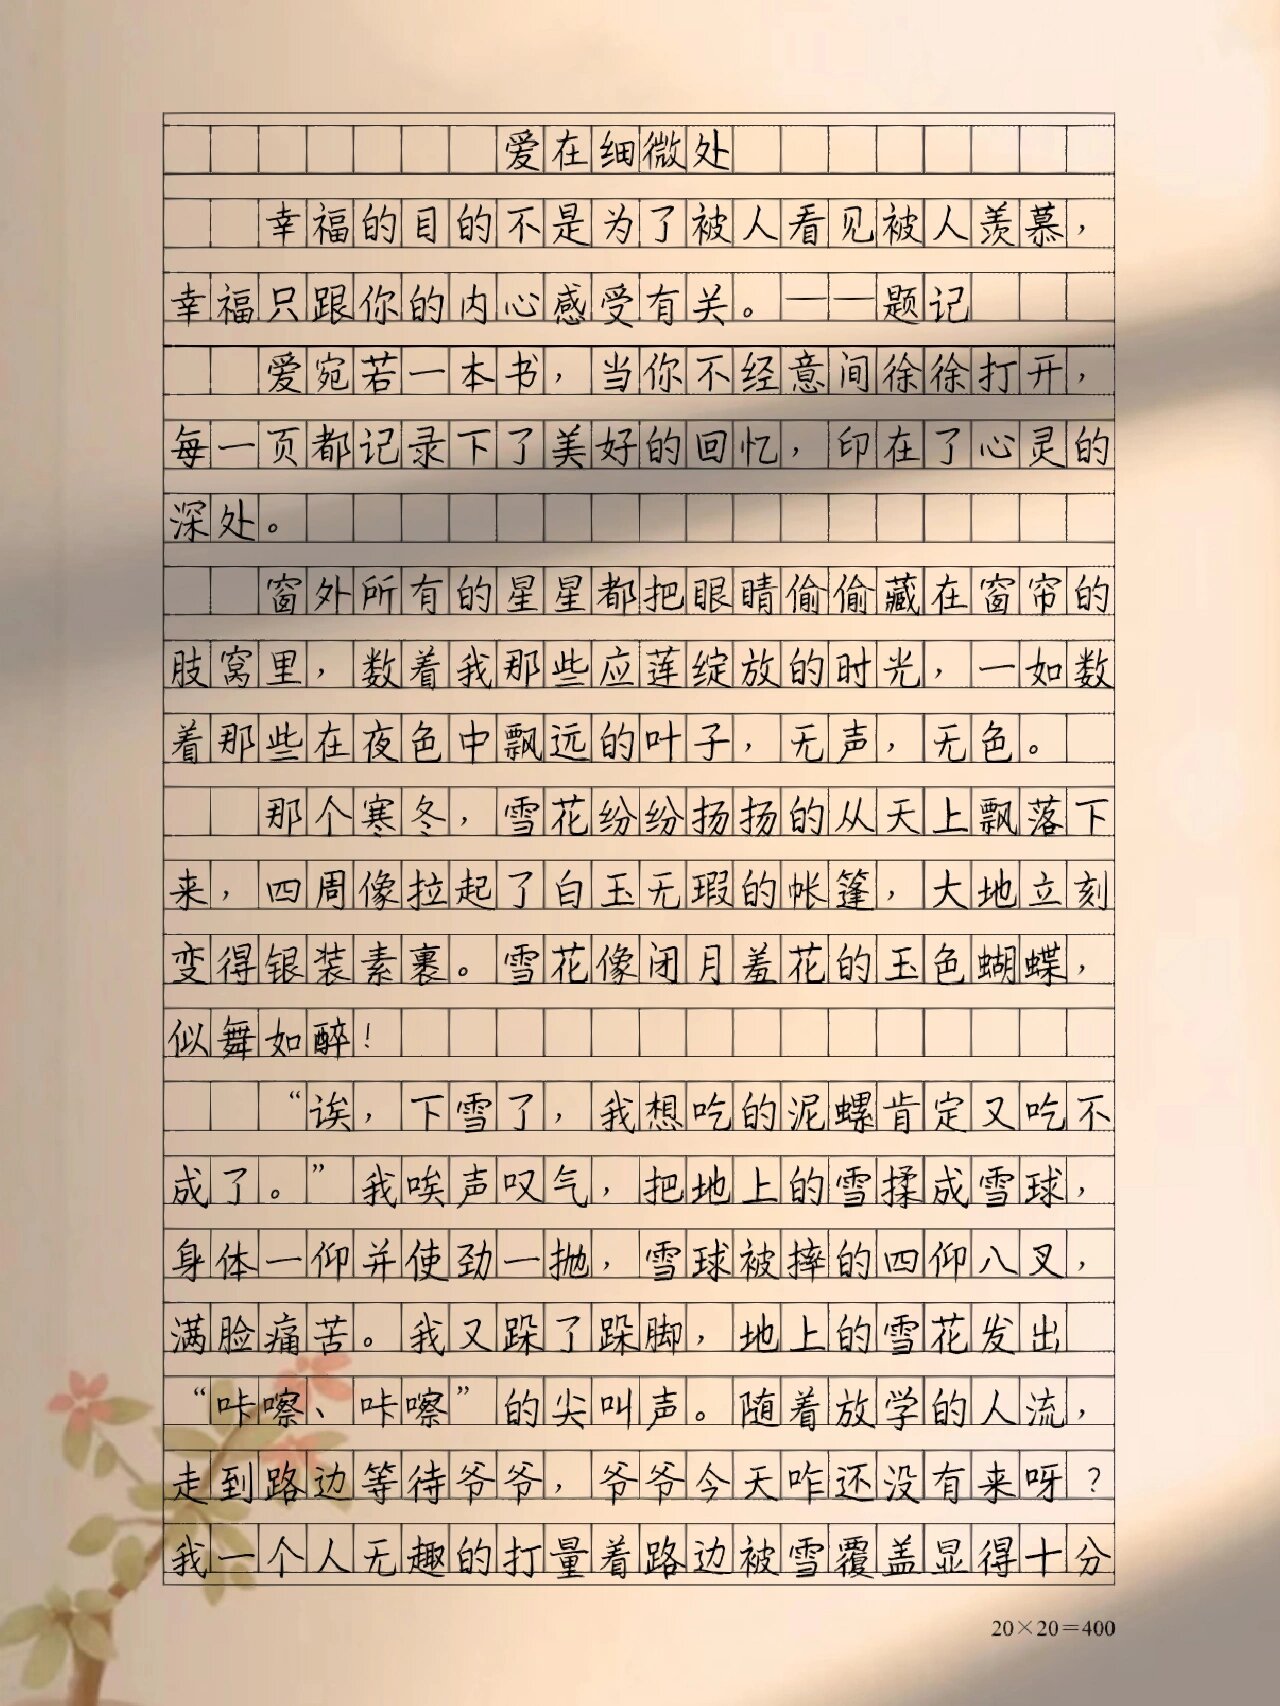 爱在细微处
幸福的目的不是为了被人看见被人羡慕，
幸福只跟你的内心感受有关。——题记
爱宛若一本书，当你不经意间徐徐打开，
每一页都记录下了美好的回忆，印在了心灵的
深处。
窗外所有的星星都把眼睛偷偷藏在窗帘的
肢窝里，数着我那些应莲绽放的时光，一如数
着那些在夜色中飘远的叶子，无声，无色。
那个寒冬，雪花纷纷扬扬的从天上飘落下
来，四周像拉起了白玉无瑕的帐篷，大地立刻
变得银装素裹。雪花像闭月羞花的玉色蝴蝶，
似舞如醉！
“诶，下雪了，我想吃的泥螺肯定又吃不
成了。”我唉声叹气，把地上的雪揉成雪球，
身体一仰并使劲一抛，雪球被摔的四仰八叉，
满脸痛苦。我又跺了跺脚，地上的雪花发出
“咔嚓、咔嚓”的尖叫声。随着放学的人流，
走到路边等待爷爷，爷爷今天咋还没有来呀？
我一个人无趣的打量着路边被雪覆盖显得十分
20×20＝400